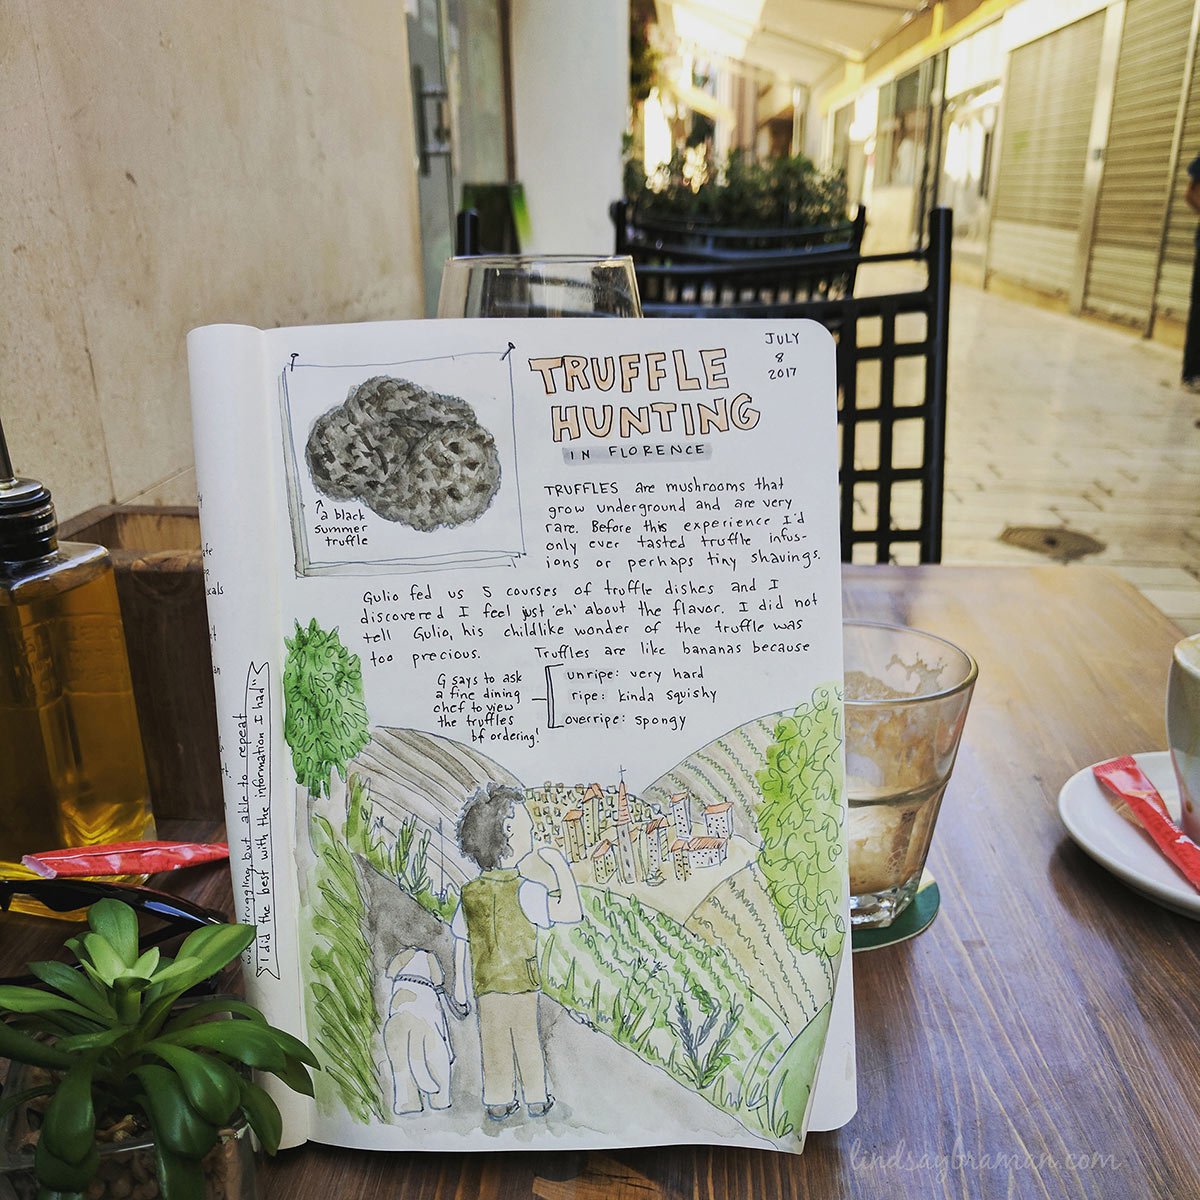 JULY
8
2017
TRUFFLE
HUNTING
IN FLORENCE
↑
a black
summer
truffle
TRUFFLES are mushrooms that
grow underground and are very
rare. Before this experience I'd
only ever tasted truffle infus-
ions or perhaps tiny shavings.
Gulio fed us 5 courses of truffle dishes and I
discovered I feel just 'eh' about the flavor. I did not
tell Gulio, his childlike wonder of the truffle was
too precious. Truffles are like bananas because
G says to ask
a fine dining
chef to view
the truffles
bf ordering!
unripe: very hard
ripe: kinda squishy
overripe: spongy
struggling, but able to repeat
"I did the best with the information I had"
lindsaybraman.com